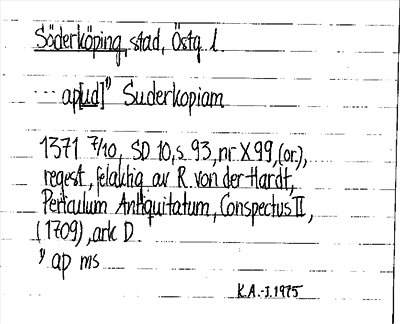 Söderköping, stad, Östg. l.
... ap[ud]¹⁾ Suderkopiam
1371 7/10, SD 10, s 93, nr X 99, (or.),
regest, felaktig av R. von der Hardt,
Periculum Antiquitatum, Conspectus II,
(1709), ark D.
¹⁾ ap ms
K.A.-J. 1975